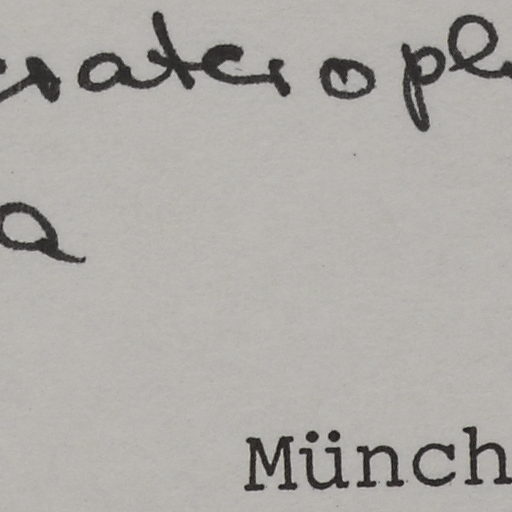 crateroph
a
Münch